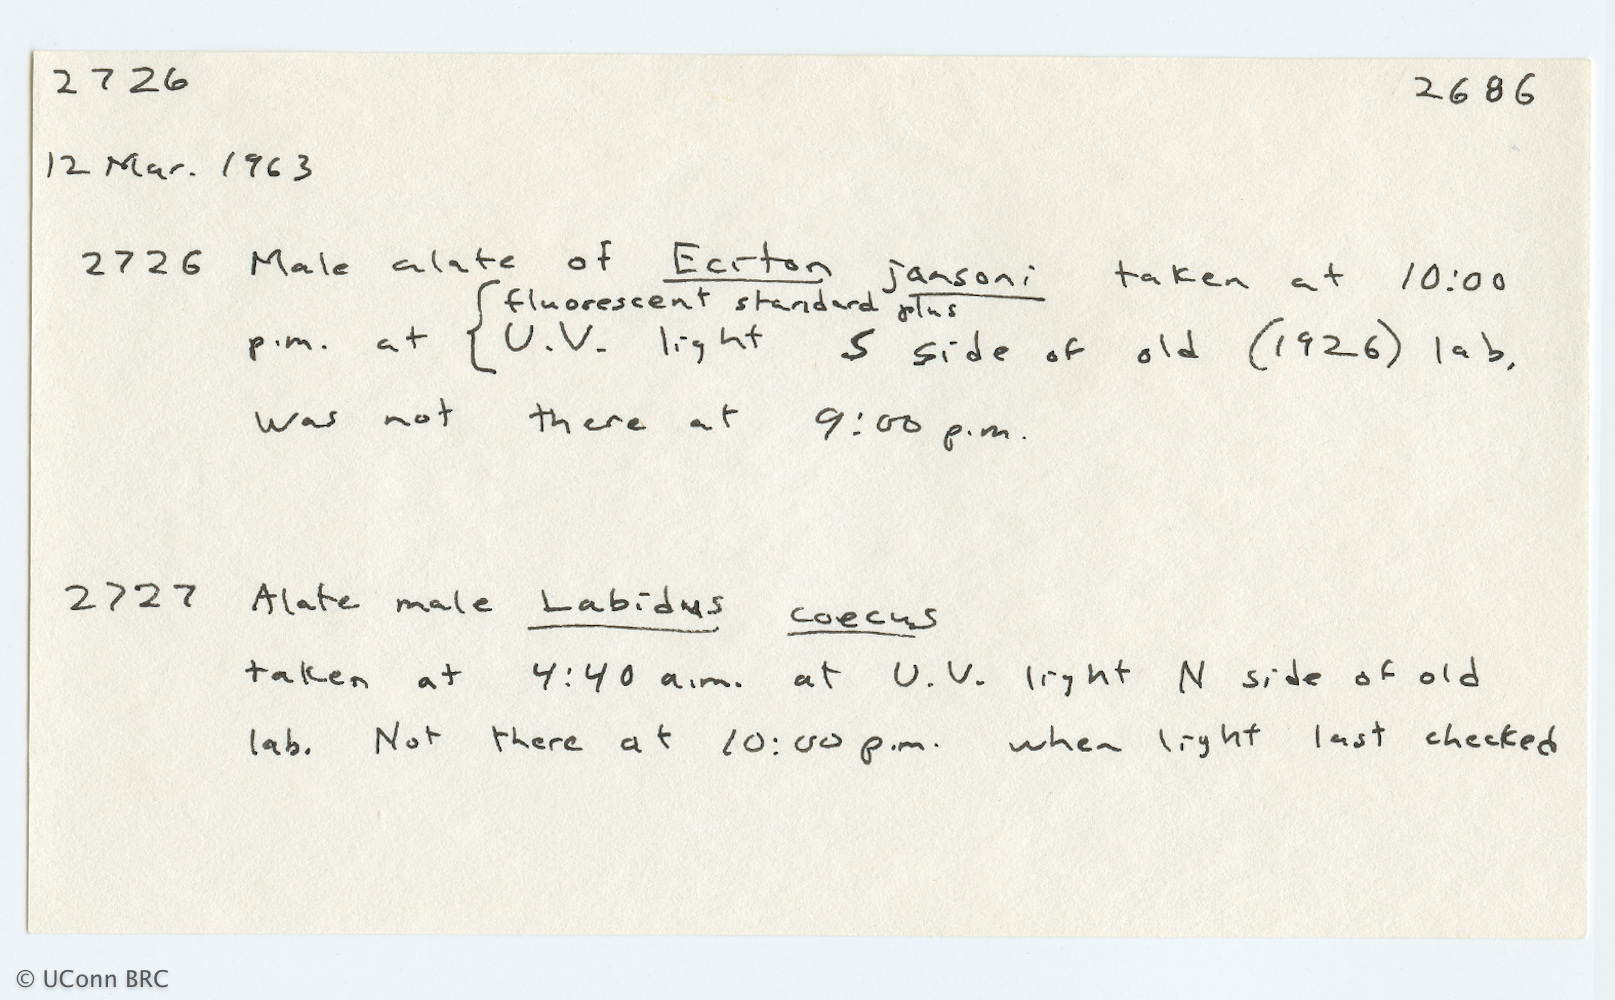 2726 2686
12 Mar. 1963
2726 Male alate of Eciton jansoni taken at 10:00
{fluorescent standard plus
p.m. at U.V. light S side of old (1926) lab.
Was not there at 9:00 p.m.
2727 Alate male Labidus coecus
taken at 4:40 a.m. at U.V. light N side of old
lab. Not there at 10:00 p.m. when light last checked
© UConn BRC